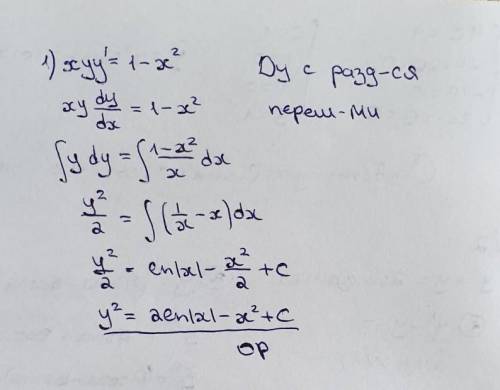 1) xyy' = 1 - x²
Ду с разд-ся
xy dy/dx = 1 - x²
перем-ми
∫y dy = ∫(1-x²)/x dx
y²/2 = ∫(1/x - x)dx
y²/2 = ln|x| - x²/2 + C
y² = 2ln|x| - x² + C
ОР